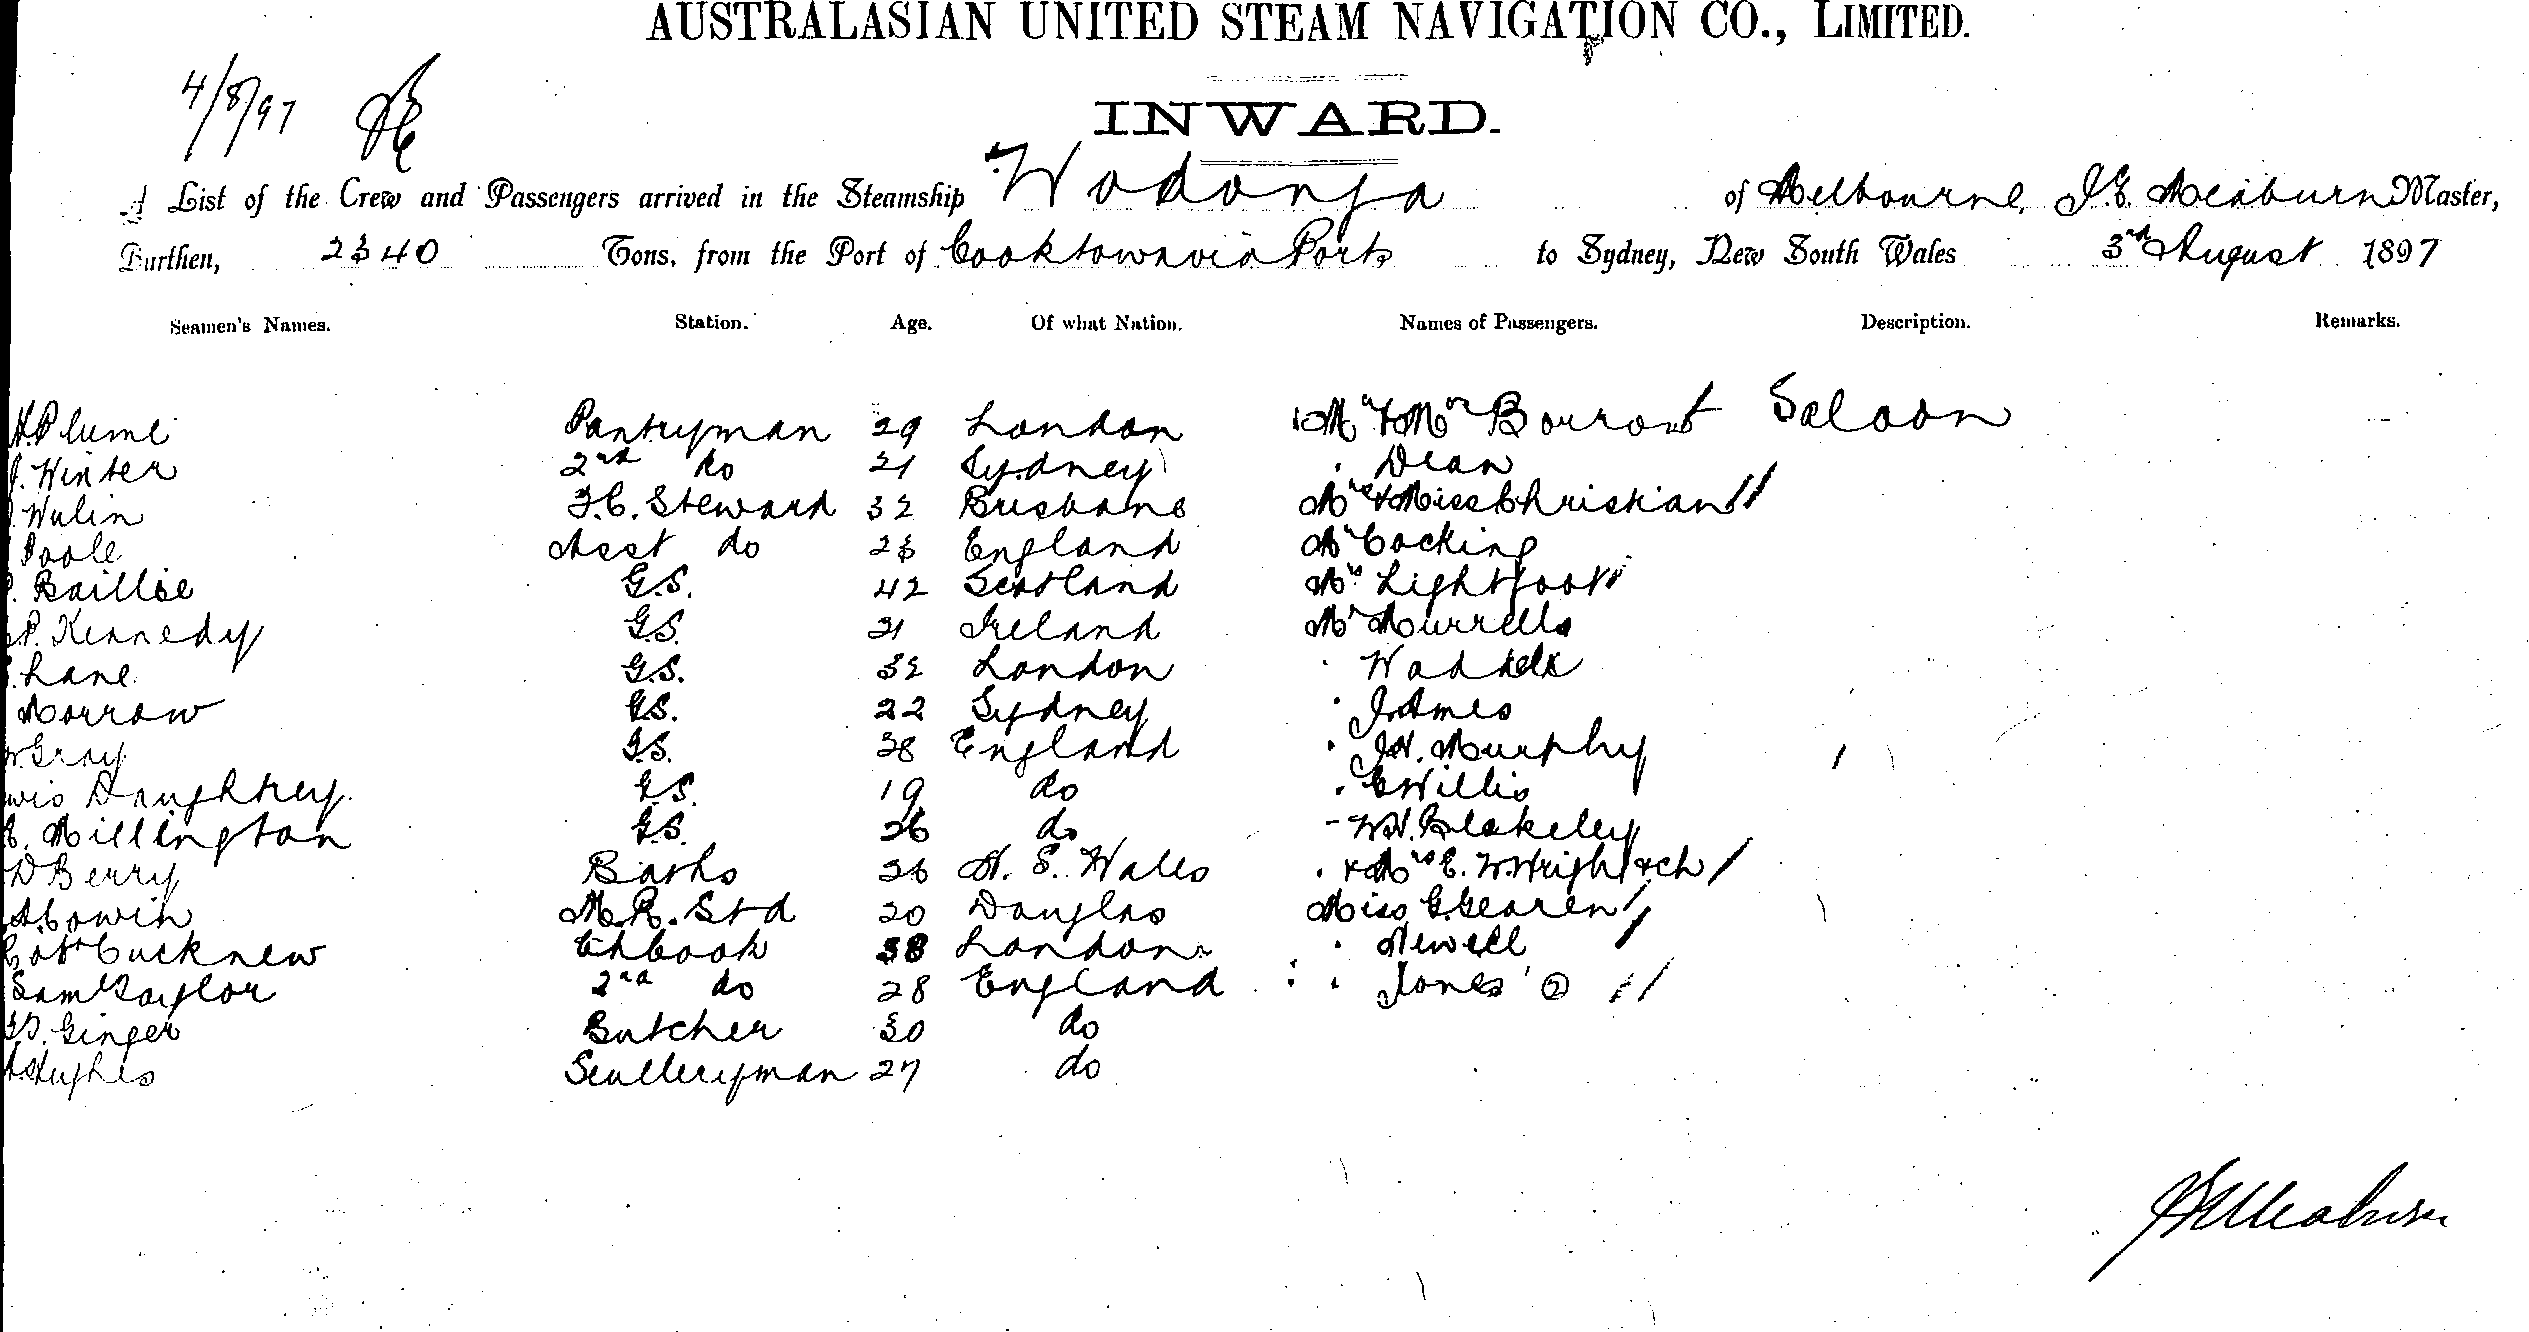 AUSTRALASIAN UNITED STEAM NAVIGATION CO., LIMITED.
4/8/97
INWARD.
A List of the Crew and Passengers arrived in the Steamship Wodonga of Melbourne, J.E. Meaburn Master,
Burthen, 2340 Tons, from the Port of Cooktown via Ports to Sydney, New South Wales 3rd August 1897
Seamen's Names. Station. Age. Of what Nation. Names of Passengers. Description. Remarks.
Plume Pantryman 29 London Mr & Mrs Borrowt Saloon
J. Winter 2nd do 21 Sydney " Dean
Wulin F.C. Steward 32 Brisbane Mrs & Miss Christian
Poole Asst do 23 England Mr Cocking
Baillie G.S. 42 Scotland Mrs Lightfoot
P. Kennedy G.S. 21 Ireland Mr Murrells
Lane G.S. 32 London " Waddell
Morrow G.S. 22 Sydney " J. Ames
Gray G.S. 38 England " J.H. Murphy
Daughtrey G.S. 19 do " C Willis
E. Millington G.S. 26 do " W.H. Blakeley
D Berry Baths 26 N. S. Wales " & Mrs E. W. Wright & ch
A. Cowin M.R. Std 20 Douglas Miss G. Gearen
Robt Cucknew Ch Cook 38 London " Newell
Saml Taylor 2nd do 28 England " Jones 2
Ginger Butcher 30 do
Hughes Sculleryman 27 do
J E Meaburn